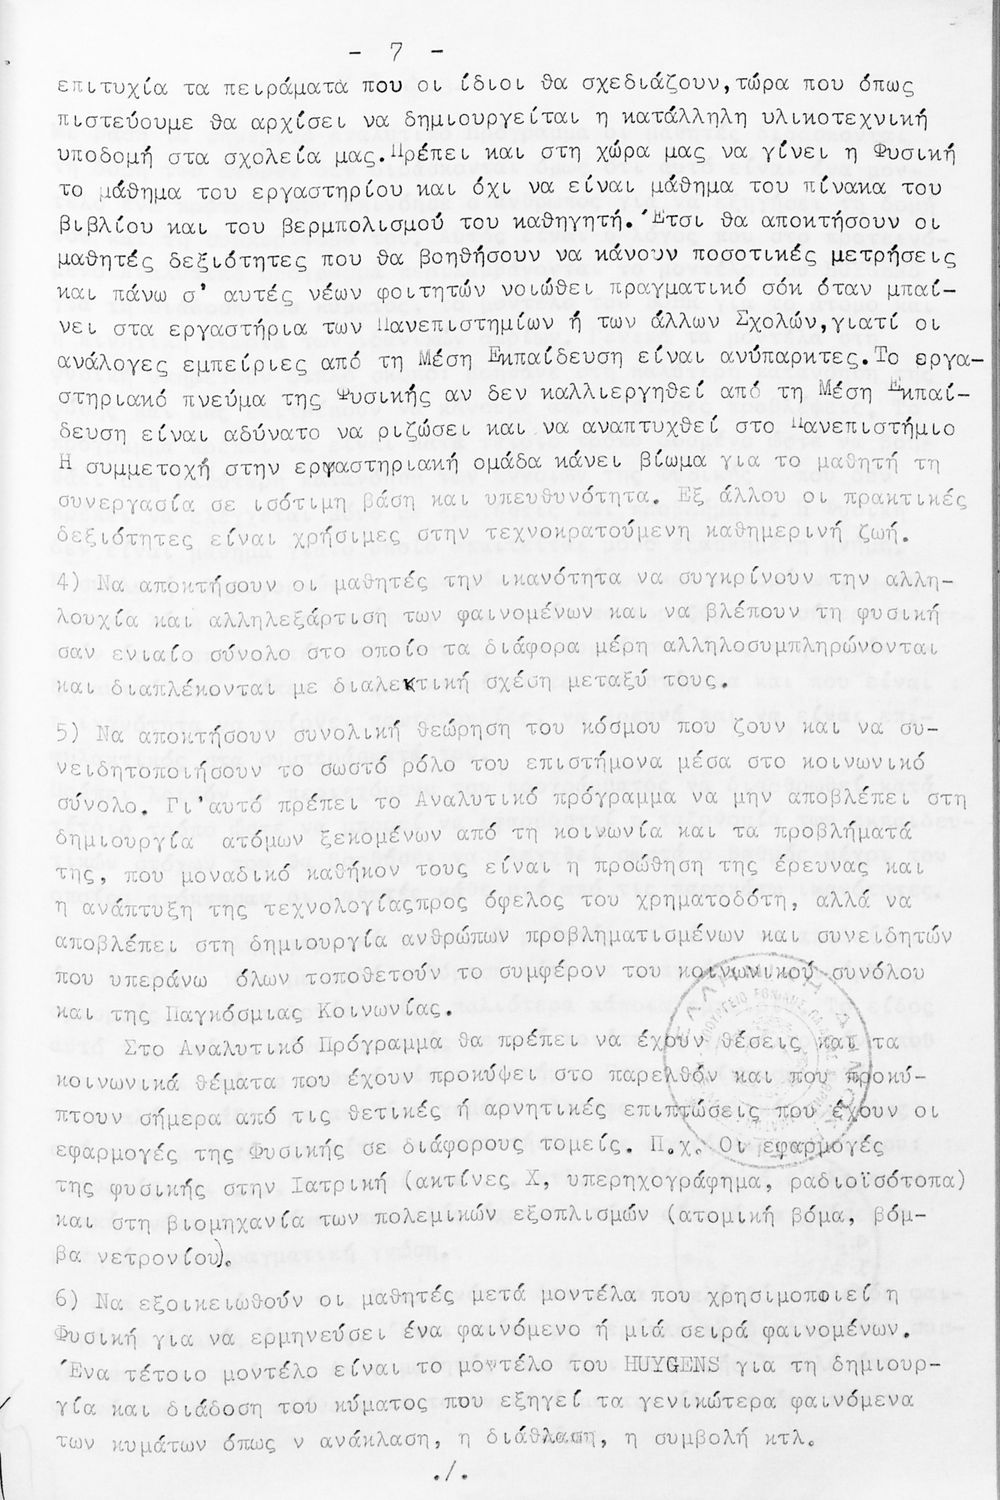 - 7 -
επιτυχία τα πειράματα που οι ίδιοι θα σχεδιάζουν,τώρα που όπως
πιστεύουμε θα αρχίσει να δημιουργείται η κατάλληλη υλικοτεχνική
υποδομή στα σχολεία μας.Πρέπει και στη χώρα μας να γίνει η Φυσική
το μάθημα του εργαστηρίου και όχι να είναι μάθημα του πίνακα του
βιβλίου και του βερμπολισμού του καθηγητή. Έτσι θα αποκτήσουν οι
μαθητές δεξιότητες που θα βοηθήσουν να κάνουν ποσοτικές μετρήσεις
και πάνω σ' αυτές νέων φοιτητών νοιώθει πραγματικό σόκ όταν μπαί-
νει στα εργαστήρια των Πανεπιστημίων ή των άλλων Σχολών,γιατί οι
ανάλογες εμπείριες από τη Μέση Εκπαίδευση είναι ανύπαρκτες.Το εργα-
στηριακό πνεύμα της Φυσικής αν δεν καλλιεργηθεί από τη Μέση Εκπαί-
δευση είναι αδύνατο να ριζώσει και να αναπτυχθεί στο Πανεπιστήμιο
Η συμμετοχή στην εργαστηριακή ομάδα κάνει βίωμα για το μαθητή τη
συνεργασία σε ισότιμη βάση και υπευθυνότητα. Εξ άλλου οι πρακτικές
δεξιότητες είναι χρήσιμες στην τεχνοκρατούμενη καθημερινή ζωή.
4) Να αποκτήσουν οι μαθητές την ικανότητα να συγκρίνουν την αλλη-
λουχία και αλληλεξάρτιση των φαινομένων και να βλέπουν τη φυσική
σαν ενιαίο σύνολο στο οποίο τα διάφορα μέρη αλληλοσυμπληρώνονται
και διαπλέκονται με διαλεκτική σχέση μεταξύ τους.
5) Να αποκτήσουν συνολική θεώρηση του κόσμου που ζουν και να συ-
νειδητοποιήσουν το σωστό ρόλο του επιστήμονα μέσα στο κοινωνικό
σύνολο. Γι'αυτό πρέπει το Αναλυτικό πρόγραμμα να μην αποβλέπει στη
δημιουργία ατόμων ξεκομένων από τη κοινωνία και τα προβλήματά
της, που μοναδικό καθήκον τους είναι η προώθηση της έρευνας και
η ανάπτυξη της τεχνολογίαςπρος όφελος του χρηματοδότη, αλλά να
αποβλέπει στη δημιουργία ανθρώπων προβληματισμένων και συνειδητών
που υπεράνω όλων τοποθετούν το συμφέρον του κοινωνικού συνόλου
και της Παγκόσμιας Κοινωνίας.
Στο Αναλυτικό Πρόγραμμα θα πρέπει να έχουν θέσεις και τα
κοινωνικά θέματα που έχουν προκύψει στο παρελθόν και που προκύ-
πτουν σήμερα από τις θετικές ή αρνητικές επιπτώσεις που έχουν οι
εφαρμογές της Φυσικής σε διάφορους τομείς. Π.χ. Οι εφαρμογές
της φυσικής στην Ιατρική (ακτίνες Χ, υπερηχογράφημα, ραδιοϊσότοπα)
και στη βιομηχανία των πολεμικών εξοπλισμών (ατομική βόμα, βόμ-
βα νετρονίου).
6) Να εξοικειωθούν οι μαθητές μετά μοντέλα που χρησιμοποιεί η
Φυσική για να ερμηνεύσει ένα φαινόμενο ή μιά σειρά φαινομένων.
Ένα τέτοιο μοντέλο είναι το μοντέλο του HUYGENS για τη δημιουρ-
γία και διάδοση του κύματος που εξηγεί τα γενικώτερα φαινόμενα
των κυμάτων όπως ν ανάκλαση, η διάθλαση, η συμβολή κτλ.
./.